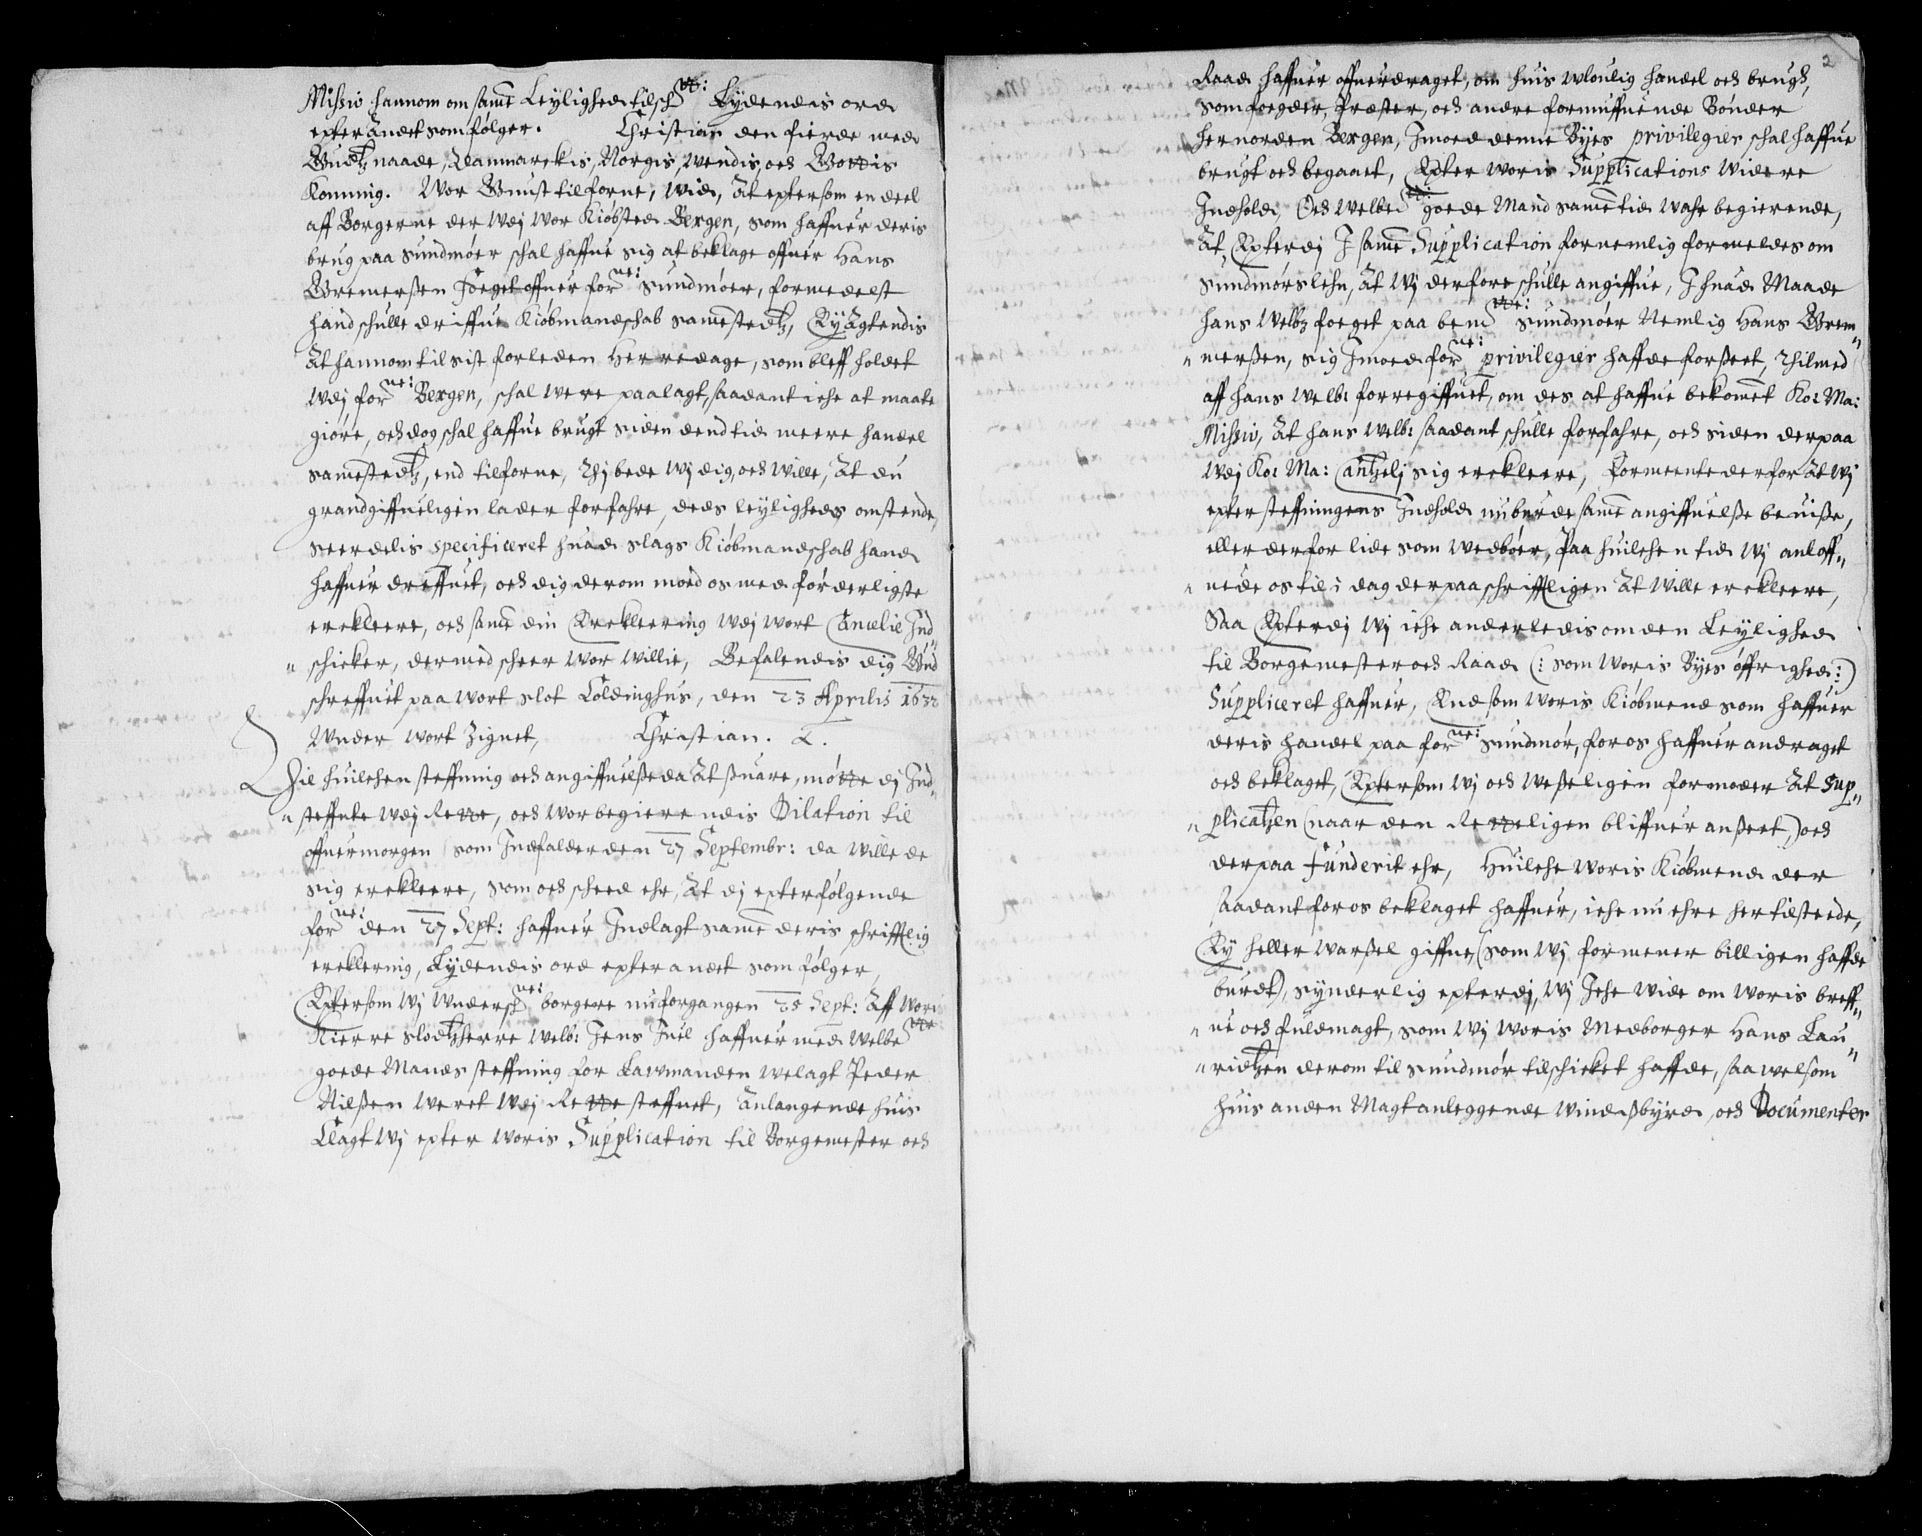 Missiv hannom om samme Leylighed tilsch: tt: Lydendis ord
epter andet som følger. Christian den fierde med
Gudtz naade, Danmarckis, Norgis, Wendis, och Gottis
Konning. Wor Gunst tilforne, Wid, At eptersom en deel
aff Borgerne der wdj wor Kiøbsted Bergen, som haffuer deris
brug paa Sundmøer schal haffue sig at beklage offuer Hans
Gremerßen foeget offuer forne: Sundmøer, formedelst
hand schulle driffue Kiøbmandschab sammestedtz, Ey Agtendis
At hannom til sist forleden Herredage, som bleff holdet
wdj forne: Bergen, schal were paalagt, saadant iche at maate
giøre, och dog schal haffue brugt siden dend tid meere handel
sammestedtz, end tilforne, Thj bede wj dig, och wille, At du
grandgiffueligen lader forfahre, deds leylighedz omstende,
seerdelis specificeret huad slags Kiøbmandschab hand
haffuer dreffuet, och dig derom moed os med forderligste
erckleere, och samme din Erckleering wdj wort Cancelie Ind
" schicker, dermed scheer wor willie, Befalendis dig Gud
schreffuet paa wort slot Coldinghus, den 23 Aprilis 1632
Wnder wort Zignet, Christian.
Til huilchen steffning och angiffuelße da At suare, møtte dj Ind"
" steffnte wdj Rette, och wor begierendis Dilation til
offuermorgen som Indfalder den 27 Septembr: da wille de
sig erckleere, som och scheed ehr, At dj epterfølgende
forne: den 27 Sept: haffuer Indlagt samme deris schrifftlig
erklering, Lydendis ord epter andet som følger,
Eptersom wj Wndersch: ne: borgere nu forgangen 25 Sept: Aff woris
Kierre slodtzherre welb: Jens Juel haffuer med Welbe
goede Mands steffning for Lawmanden welagt Peder
Nilßen weret wdj Rette steffnet, Anlangende huis
Clagt wj epter woris Supplication til Borgemester och
2
Raad haffuer offuerdraget, om huis wloulig handel och brugh,
som foegder, Præster, och andre formuffuende Bønder
her norden Bergen, Imoed denne Byes privilegier schal haffue
brugt och begaaet, Epter woris Supplications widere
Indhold, Och welbe: goede Mand samme tid wahr begierende,
At, Epterdj I samme Supplication fornemlig formeldes om
Sundmørs lehn, At wj derfore schulle angiffue, I huad Maade
hans Welb: foeget paa bemte: Sundmøer Nemlig Hans Grem"
" merßen, sig Imoed forne: privilegier haffde forßeet, Thilmed
aff hans Welb: forregiffuet, om des at haffue bekommet Ko: Ma:
Missiv, At hans Welb: saadant schulle forfahre, och siden derpaa
wdj Ko: Ma: Cantzelj sig erckleere, formeente derfor At wj
epter steffningens Indhold nu burde samme angiffuelße beuiße,
eller derfor lide som wedbøer, Paa huilchen tid wj anloff"
" uede os til i dag derpaa schrifftligen At wille erckleere,
Saa Epterdj wj iche anderledis om den Leylighed
til Borgemester och Raad (: som woris Byes øffrighed :)
Suppliceret haffuer, End som woris Kiøbmend som haffuer
deris handel paa forne: Sundmør, for os haffuer andraget
och beklaget, Eptersom wj och weßeligen formoder At Sup"
" plicatzen (naar den Retteligen bliffuer anßeet,) och
derpaa funderit ehr, Huilche woris Kiøbmend der
saadant for os beklaget haffuer, iche nu ehre her tilsteede,
Ey heller warßel giffne, (som wj formener billigen haffde
burdt), synderlig epterdj, wj Iche wide om woris breff"
" ue och fuldmagt, som wj woris Medborger Hans Lau"
" ridtzen derom til Sundmør tilschicket haffde, saa welsom
huis anden Magtanleggende windißbyrd, och Documenter